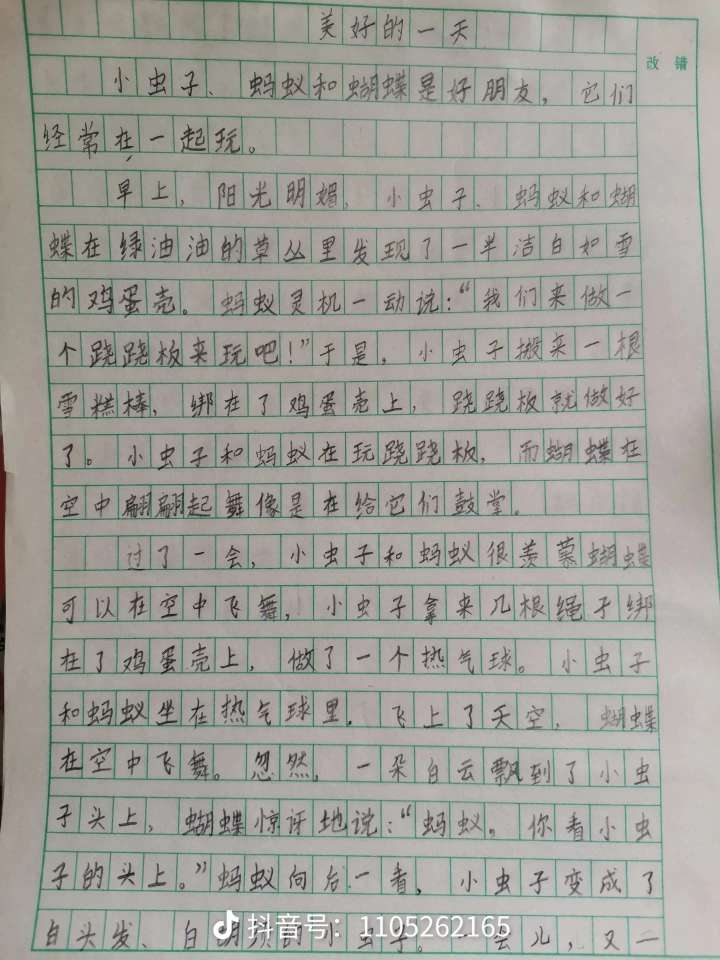 美好的一天
改错
小虫子、蚂蚁和蝴蝶是好朋友，它们
经常在一起玩。
早上，阳光明媚，小虫子、蚂蚁和蝴
蝶在绿油油的草丛里发现了一半洁白如雪
的鸡蛋壳。蚂蚁灵机一动说：“我们来做一
个跷跷板来玩吧！”于是，小虫子搬来一根
雪糕棒，绑在了鸡蛋壳上，跷跷板就做好
了。小虫子和蚂蚁在玩跷跷板，而蝴蝶在
空中翩翩起舞像是在给它们鼓掌。
过了一会，小虫子和蚂蚁很羡慕蝴蝶
可以在空中飞舞，小虫子拿来几根绳子绑
在了鸡蛋壳上，做了一个热气球。小虫子
和蚂蚁坐在热气球里，飞上了天空，蝴蝶
在空中飞舞。忽然，一朵白云飘到了小虫
子头上，蝴蝶惊讶地说：“蚂蚁。你看小虫
子的头上。”蚂蚁向后一看，小虫子变成了
白头发、白胡须的小虫子。一会儿，又一
抖音号：1105262165